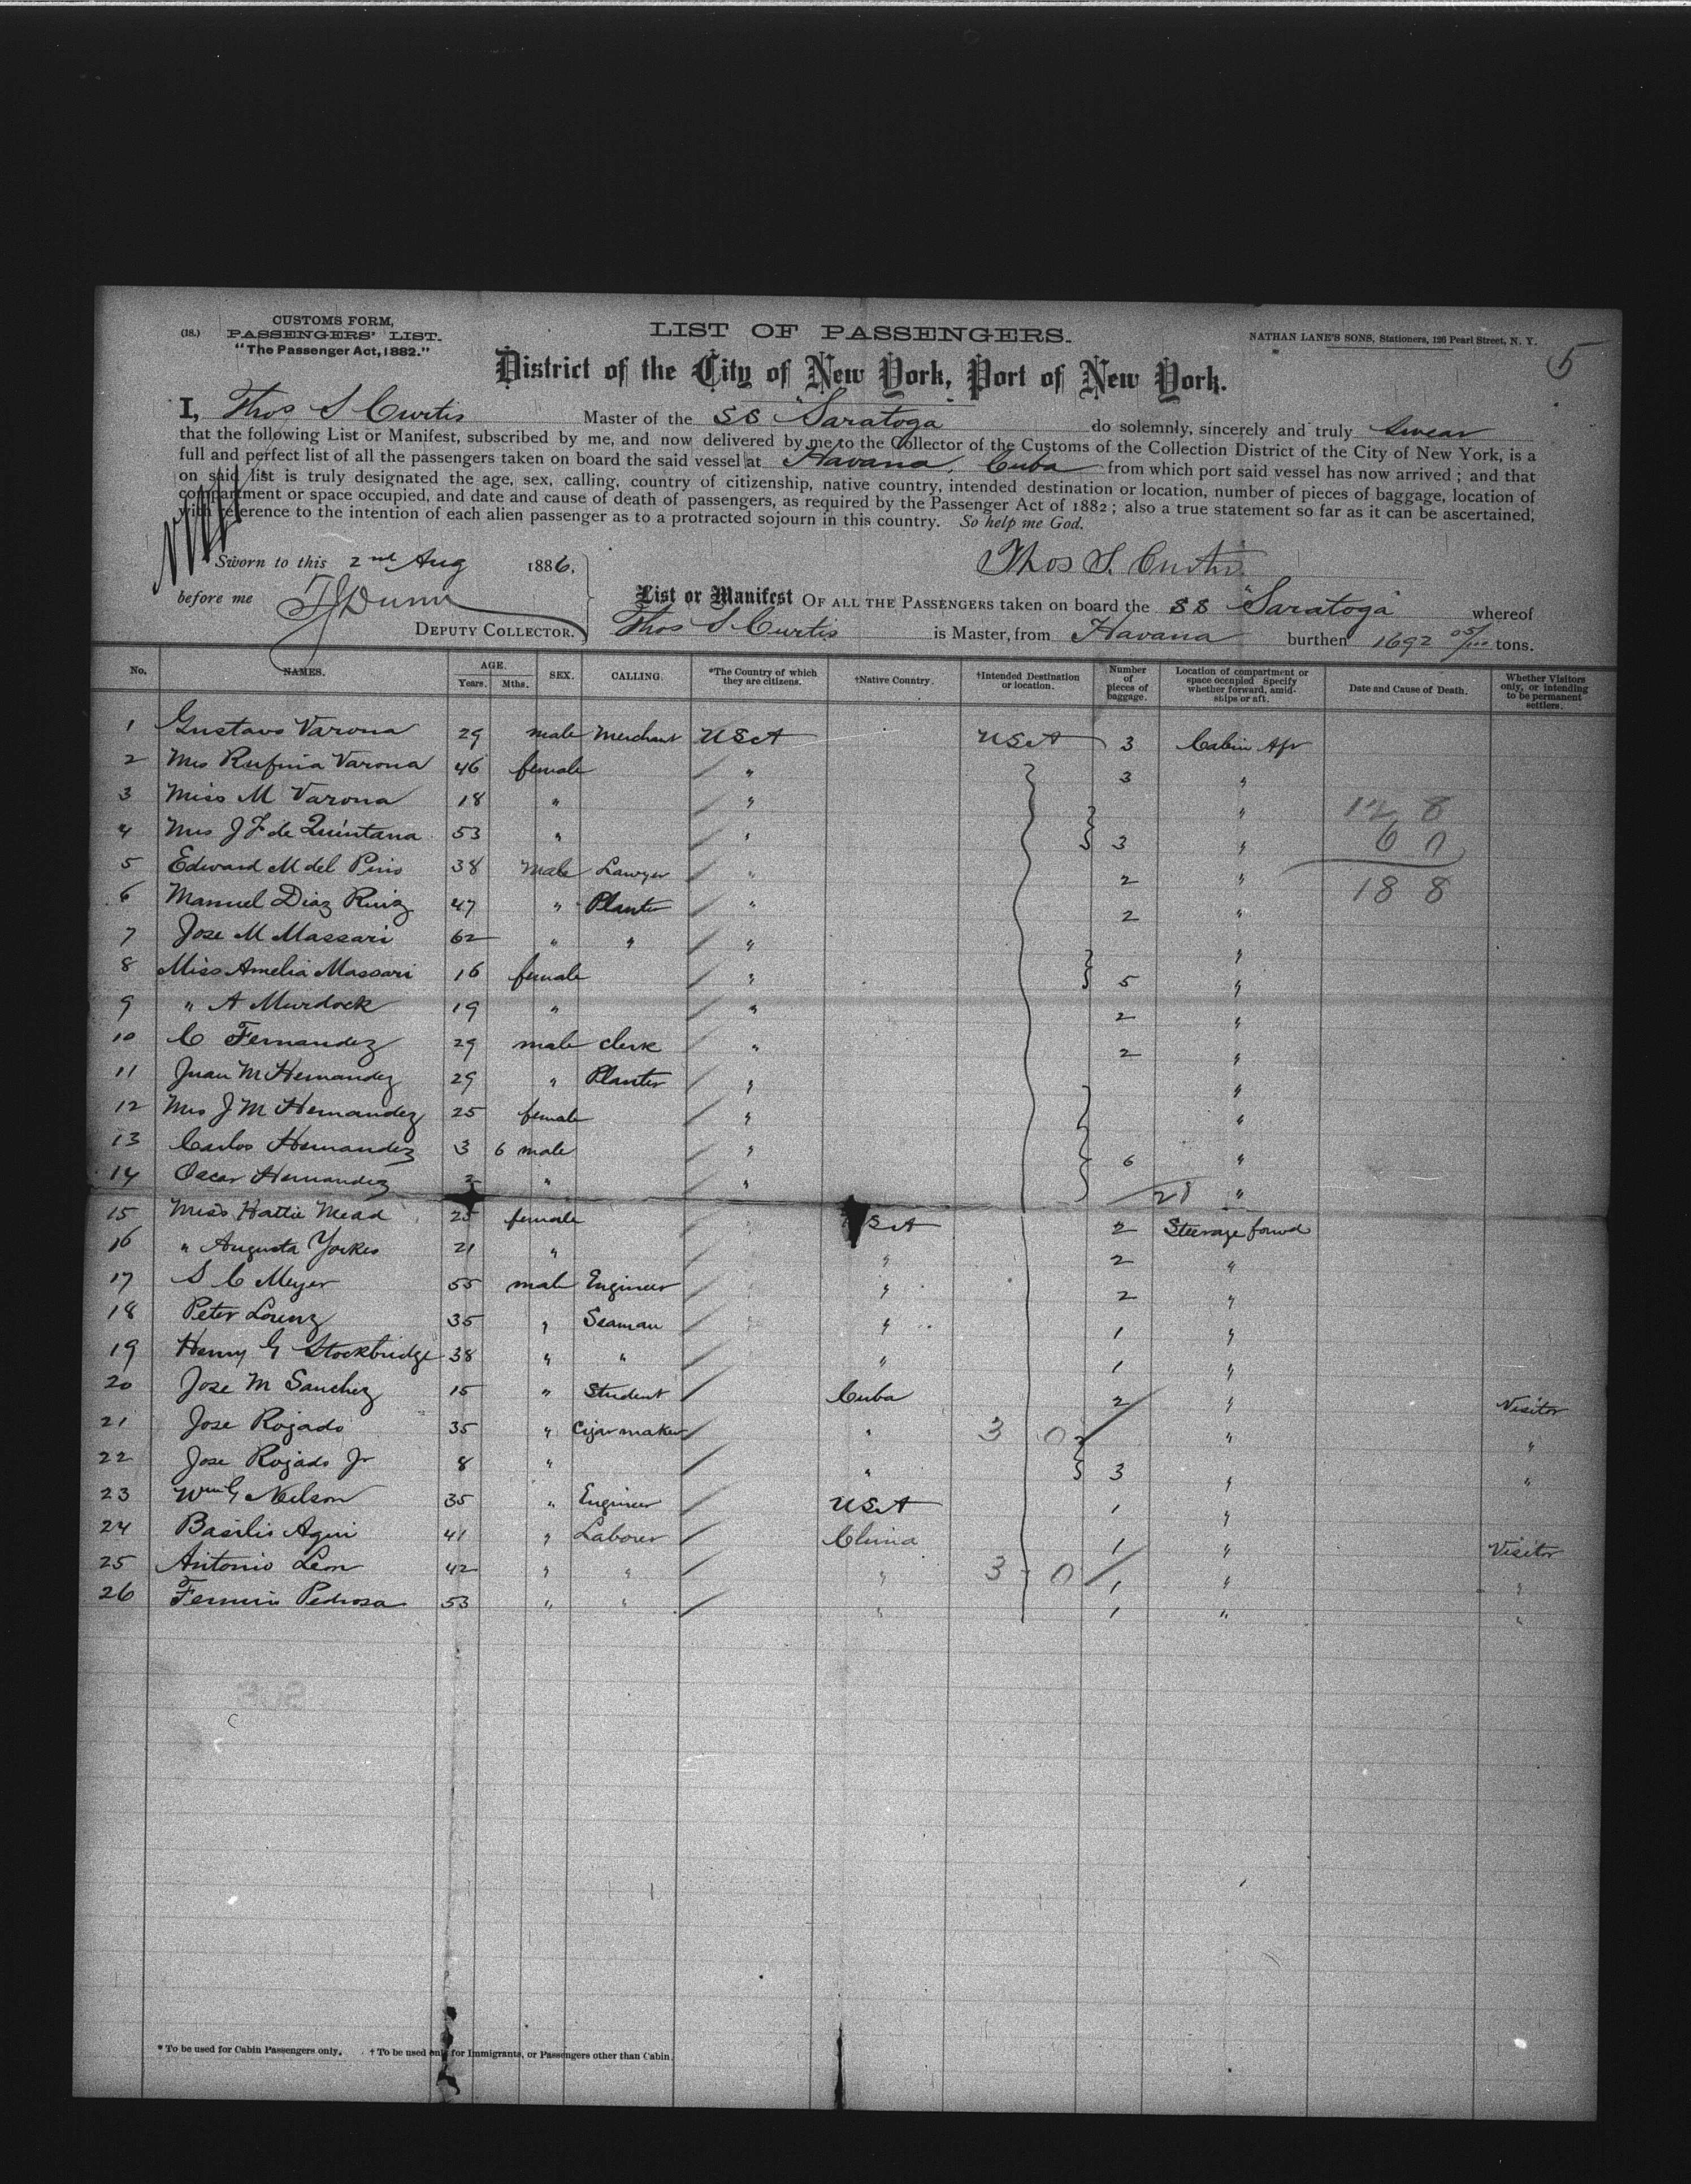 (18.)
CUSTOMS FORM,
PASSENGERS' LIST.
"The Passenger Act, 1882."
LIST OF PASSENGERS.
NATHAN LANE'S SONS, Stationers, 126 Pearl Street, N. Y.
5
District of the City of New York, Port of New York.
I, Thos S Curtis Master of the SS "Saratoga" do solemnly, sincerely and truly swear
that the following List or Manifest, subscribed by me, and now delivered by me to the Collector of the Customs of the Collection District of the City of New York, is a
full and perfect list of all the passengers taken on board the said vessel at Havana, Cuba from which port said vessel has now arrived; and that
on said list is truly designated the age, sex, calling, country of citizenship, native country, intended destination or location, number of pieces of baggage, location of
compartment or space occupied, and date and cause of death of passengers, as required by the Passenger Act of 1882; also a true statement so far as it can be ascertained,
with reference to the intention of each alien passenger as to a protracted sojourn in this country. So help me God.
Sworn to this 2nd Aug 1886,
Thos S. Curtis
before me TJ Dunn
DEPUTY COLLECTOR.
List or Manifest OF ALL THE PASSENGERS taken on board the SS "Saratoga" whereof
Thos S Curtis is Master, from Havana burthen 1692 05/100 tons.
No. NAMES. AGE. Years. Mths. SEX. CALLING. *The Country of which they are citizens. †Native Country. †Intended Destination or location. Number of pieces of baggage. Location of compartment or space occupied Specify whether forward, amidships or aft. Date and Cause of Death. Whether Visitors only, or intending to be permanent settlers.
1 Gustavo Varona 29 male Merchant USA USA 3 Cabin Aft
2 Mrs Rufina Varona 46 female " 3 "
3 Miss M Varona 18 " " " 12 8
4 Mrs J F de Quintana 53 " " 3 " 6 0
5 Edward M del Pino 38 Male Lawyer " 2 " 18 8
6 Manuel Diaz Ruiz 47 " Planter " 2 "
7 Jose M Massari 62 " " " "
8 Miss Amelia Massari 16 female " 5 "
9 " A Murdock 19 " " 2 "
10 C Fernandez 29 male clerk " 2 "
11 Juan M Hernandez 29 " Planter " "
12 Mrs J M Hernandez 25 female " "
13 Carlos Hernandez 3 6 male " 6 "
14 Oscar Hernandez 2 " " 28 "
15 Miss Hattie Mead 25 female USA 2 Steerage forwd
16 " Augusta Yorkes 21 " " 2 "
17 S C Meyer 55 male Engineer " 2 "
18 Peter Lorenz 35 " Seaman " 1 "
19 Henry G Stockbridge 38 " " " 1 "
20 Jose M Sanchez 15 " Student Cuba 2 " Visitor
21 Jose Rojado 35 " Cigar maker " 3 0 " "
22 Jose Rojado Jr 8 " " 3 " "
23 Wm G Nelson 35 " Engineer USA 1 "
24 Basilio Agui 41 " Laborer China 1 " Visitor
25 Antonio Leon 42 " " " 3 0 1 " "
26 Fermin Pedrosa 53 " " " 1 " "
* To be used for Cabin Passengers only. † To be used only for Immigrants, or Passengers other than Cabin.